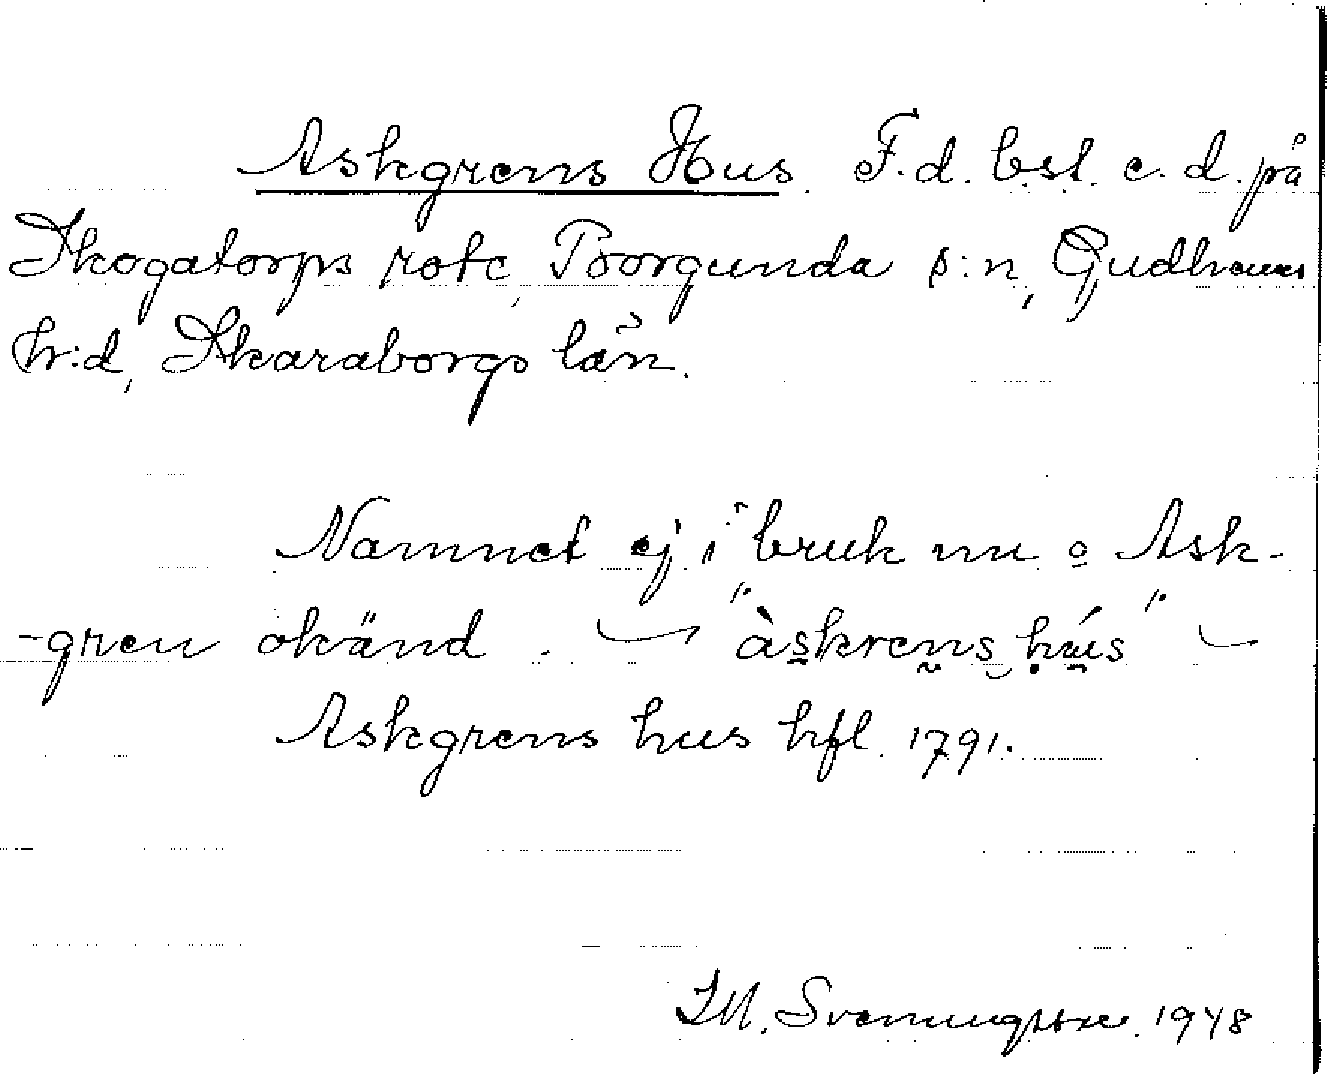 Askgrens Hus. F.d. bst. e. d. på
Skogatorps rote, Borgunda s:n, Gudhems
hr:d, Skaraborgs län.
Namnet ej i bruk nu o Ask-
-gren okänd. "àskrens hús"
Askgrens hus hfl. 1791.
I.M. Svenungsson. 1948